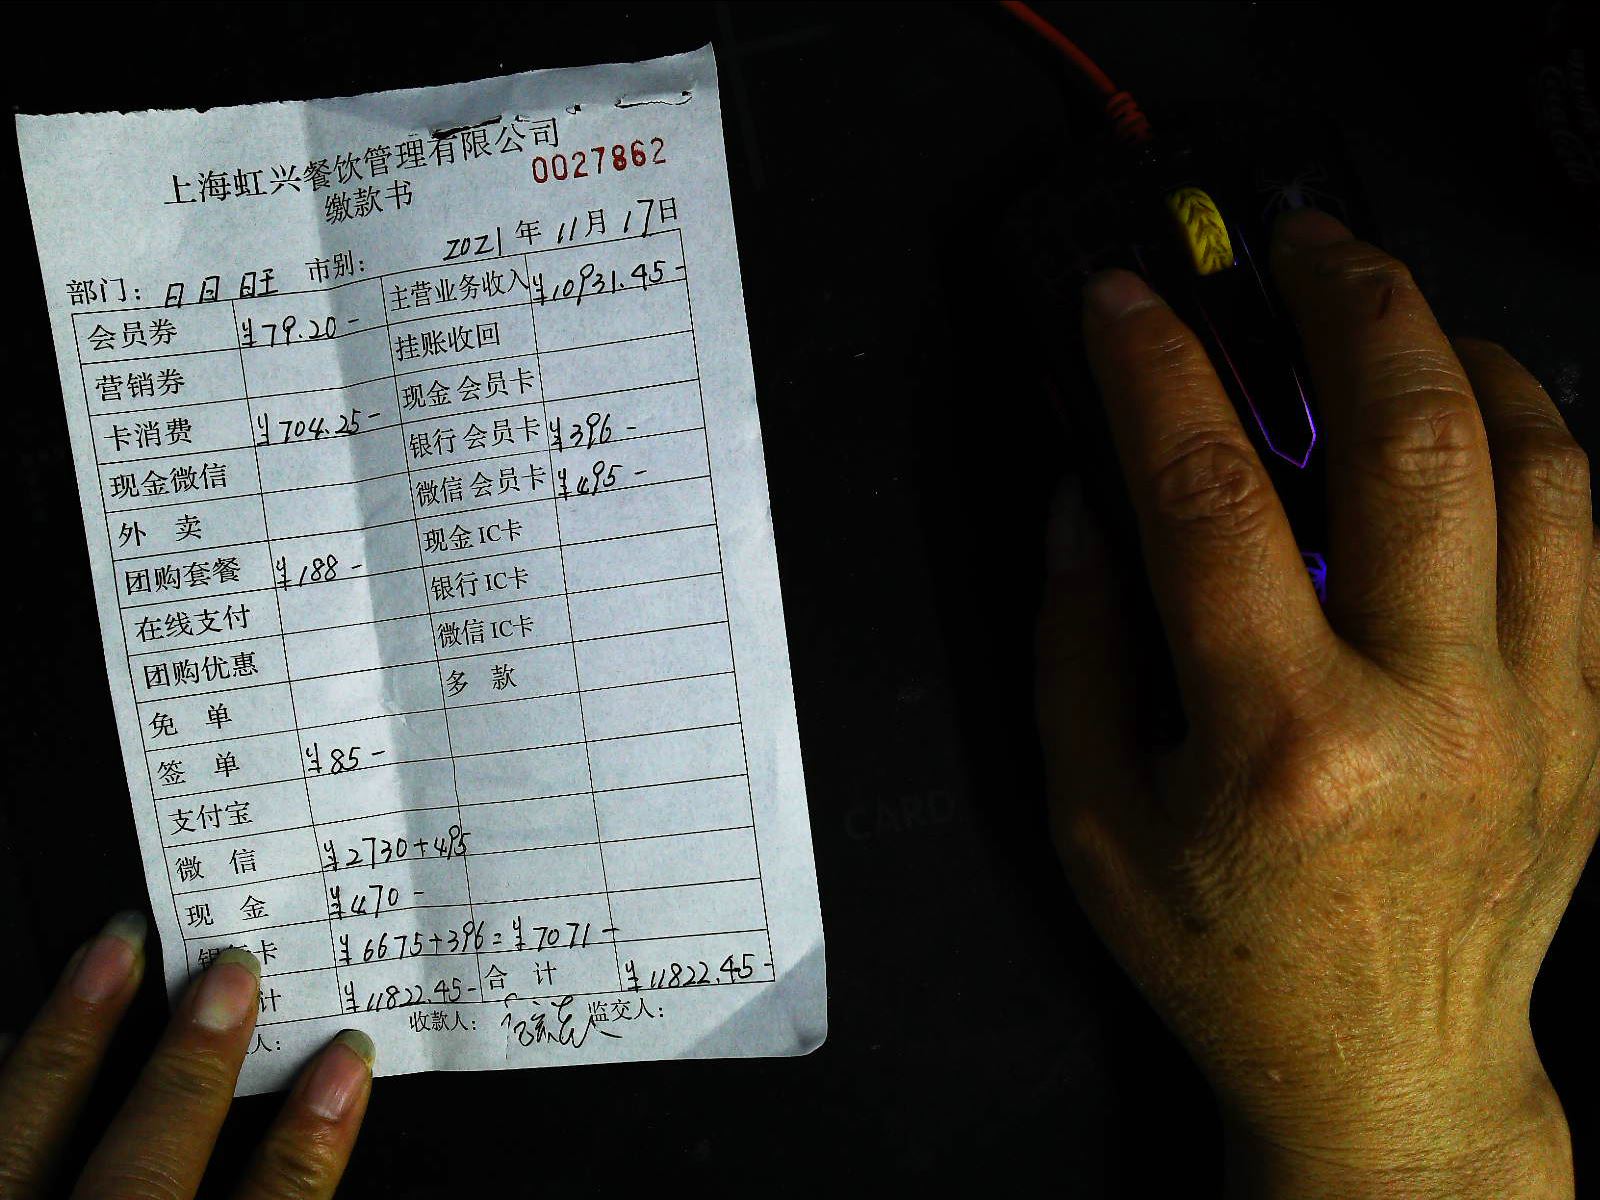 上海虹兴餐饮管理有限公司
0027862
缴款书
2021年11月17日
部门：日日旺 市别：
会员券 ¥79.20- 主营业务收入 ¥10931.45-
营销券 挂账收回
卡消费 ¥704.25- 现金会员卡
现金微信 银行会员卡 ¥396-
外 卖 微信会员卡 ¥495-
团购套餐 ¥188- 现金IC卡
在线支付 银行IC卡
团购优惠 微信IC卡
免 单 多 款
签 单 ¥85-
支付宝
微 信 ¥2730+495
现 金 ¥470-
卡 ¥6675+396=¥7071-
计 ¥11822.45- 合 计 ¥11822.45-
人： 收款人： 监交人：
CARD